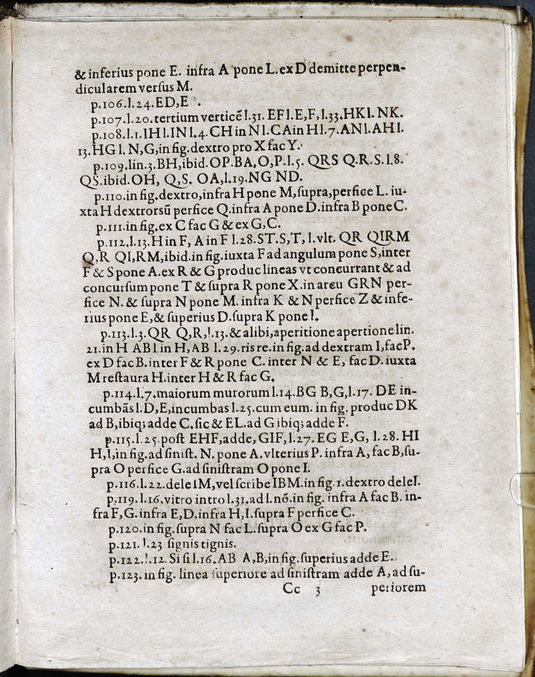 & inferius pone E. infra A pone L. ex D demitte perpen-
dicularem versus M.
p.106.l.24.ED,E .
p.107.l.20.tertium verticẽ l.31. EF l.E,F, l.33.HK l. NK.
p.108.l.1.IH l.IN l.4. CH in N l.CA in H l.7.AN l.AH l.
13.HG l. N,G,in fig.dextro pro X fac Y.
p.109.lin.3.BH,ibid.OP.BA,O,P.l.5. QRS Q.R.S.l.8.
QS.ibid.OH, Q,S. OA,l.19.NG ND.
p.110.in fig.dextro,infra H pone M,supra,perfice L. iu-
xta H dextrorsũ perfice Q.infra A pone D.infra B pone C.
p.111.in fig.ex C fac G & ex G,C.
p.112.l.13.H in F, A in F l.28.ST.S,T, l.vlt. QR QIRM
Q,R QI,RM,ibid.in fig.iuxta F ad angulum pone S,inter
F & S pone A.ex R & G produc lineas vt concurrant & ad
concursum pone T & supra R pone X.in arcu GRN per-
fice N. & supra N pone M. infra K & N perfice Z & infe-
rius pone E,& superius D.supra K pone I.
p.113.l.3.QR Q,R,l.13.& alibi,aperitione apertione lin.
21.in H AB l in H, AB l.29.ris re.in fig.ad dextram I,fac P.
ex D fac B.inter F & R pone C. inter N & E, fac D. iuxta
M restaura H.inter H & R fac G.
p.114.l.7.maiorum murorum l.14.BG B,G,l.17. DE in-
cumbãs l.D,E,incumbas l.25.cum eum. in fig. produc DK
ad B,ibiq; adde C.sic & EL.ad G ibiq; adde F.
p.115.l.25.post EHF,adde,GIF,l.27. EG E,G, l.28. HI
H,I,in fig.ad sinist. N. pone A.vlterius P. infra A, fac B,su-
pra O perfice G.ad sinistram O pone I.
p.116.l.22.dele IM,vel scribe IBM.in fig.1.dextro dele I.
p.119.l.16.vitro intro l.31.ad l.nõ.in fig. infra A fac B. in-
fra F,G.infra E,D.infra H,I.supra F perfice C.
p.120.in fig.supra N fac L.supra O ex G fac P.
p.121.l.23 signis tignis.
p.122.l.12. Si si l.16.AB A,B,in fig.superius adde E.
p.123.in fig. linea superiore ad sinistram adde A,ad su-
Cc 3 periorem